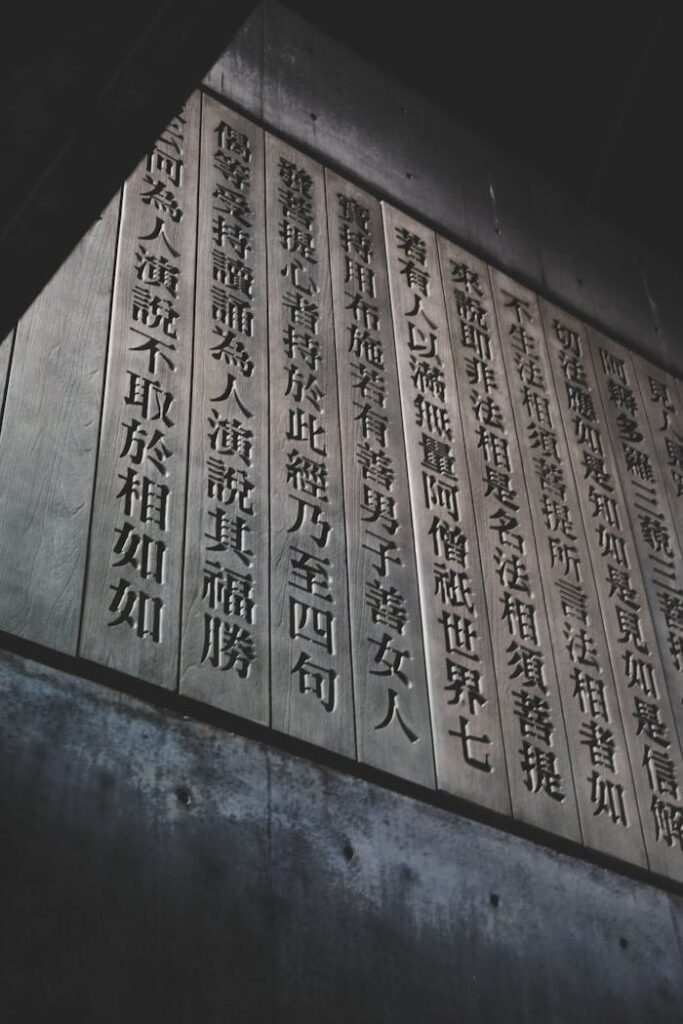 見人見
阿耨多羅三藐三菩
切法應如是知如是見如是信解
不生法相須菩提所言法相者如
來說即非法相是名法相須菩提
若有人以滿無量阿僧祇世界七
寶持用布施若有善男子善女人
發菩提心者持於此經乃至四句
偈等受持讀誦為人演說其福勝
云何為人演說不取於相如如